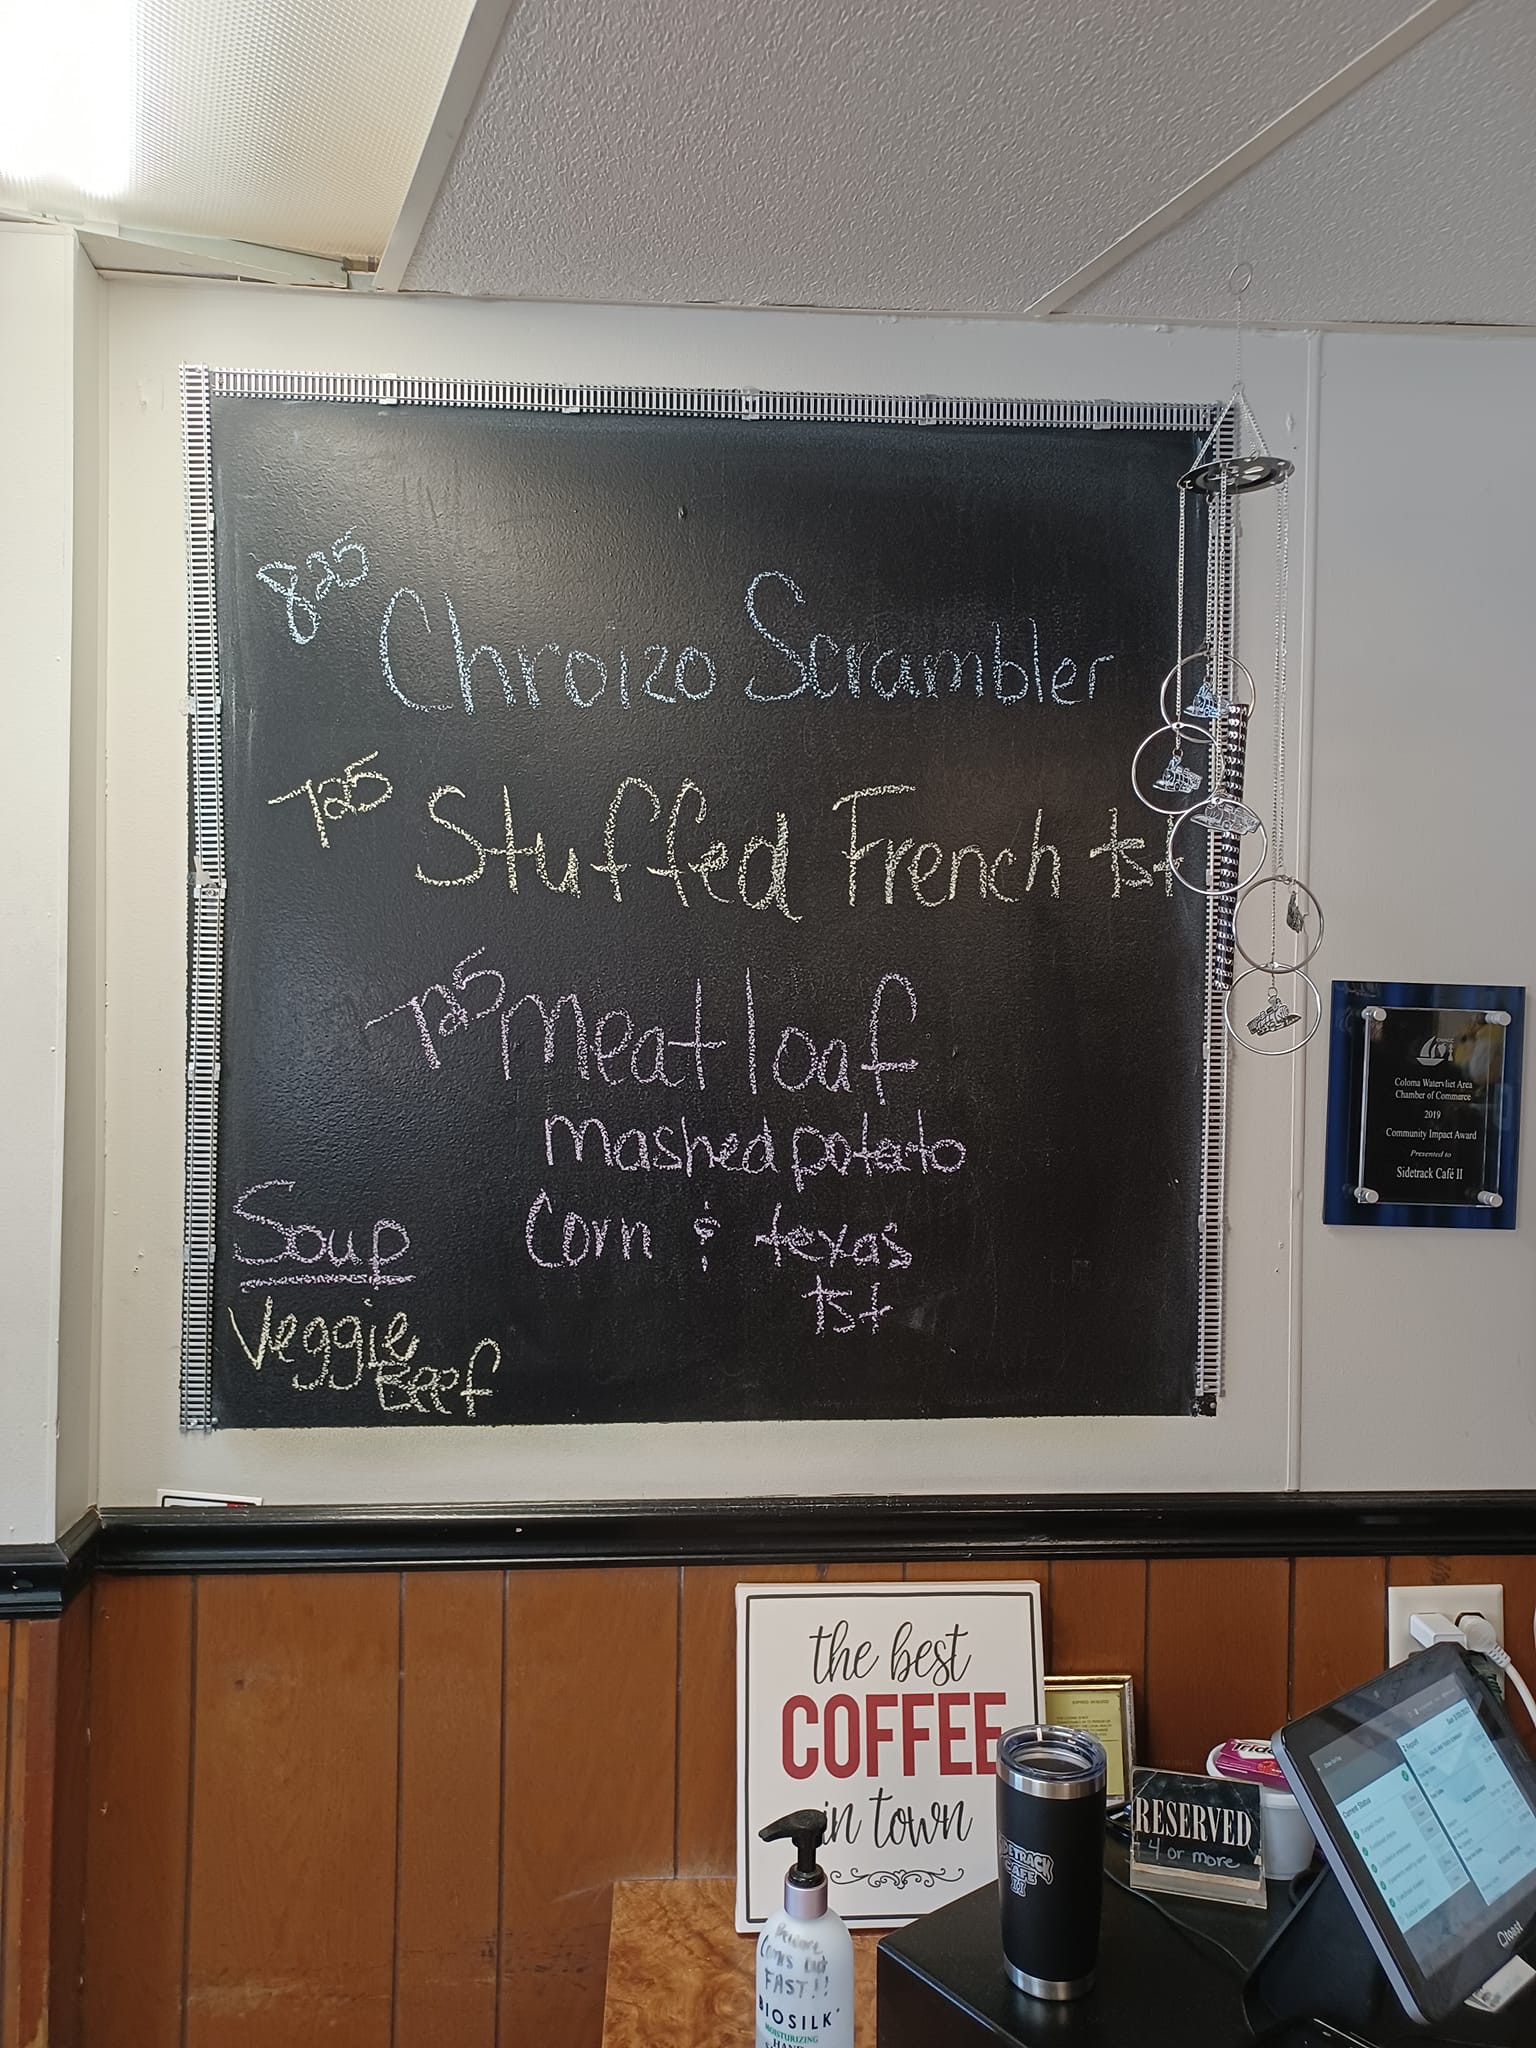 825
Chroizo Scrambler
725
Stuffed French tst
725 Meatloaf
Mashed potato
Corn & texas
tst
Soup
Veggie
Beef
Coloma Watervliet Area
Chamber of Commerce
2019
Community Impact Award
Presented to
Sidetrack Café II
the best
COFFEE
in town
RESERVED
4 or more
CAFE
II
Beware
Comes out
FAST!!
BIOSILK
MOISTURIZING
Current Status
toast